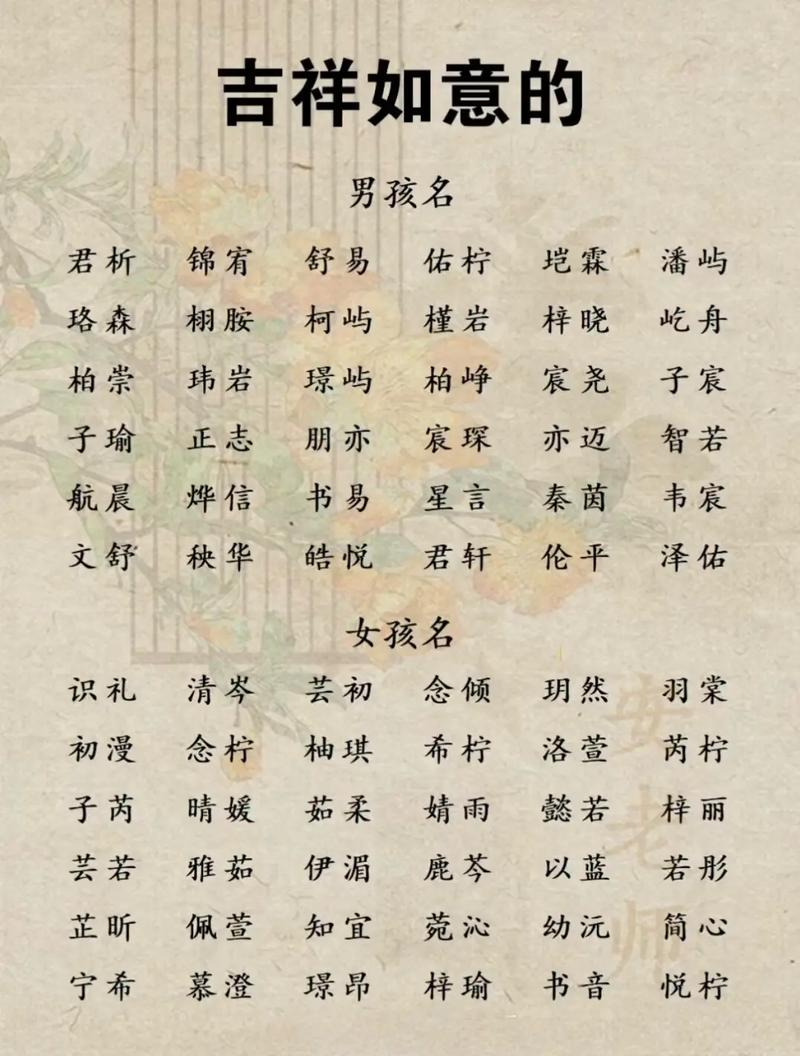 吉祥如意的
男孩名
君析 锦宥 舒易 佑柠 垲霖 潘屿
珞森 栩胺 柯屿 槿岩 梓晓 屹舟
柏崇 玮岩 璟屿 柏峥 宸尧 子宸
子瑜 正志 朋亦 宸琛 亦迈 智若
航晨 烨信 书易 星言 秦茵 韦宸
文舒 秧华 皓悦 君轩 伦平 泽佑
女孩名
识礼 清岑 芸初 念倾 玥然 羽棠
初漫 念柠 柚琪 希柠 洛萱 芮柠
子芮 晴媛 茹柔 婧雨 懿若 梓丽
芸若 雅茹 伊湄 鹿芩 以蓝 若彤
芷昕 佩萱 知宜 菀沁 幼沅 简心
宁希 慕澄 璟昂 梓瑜 书音 悦柠
老师